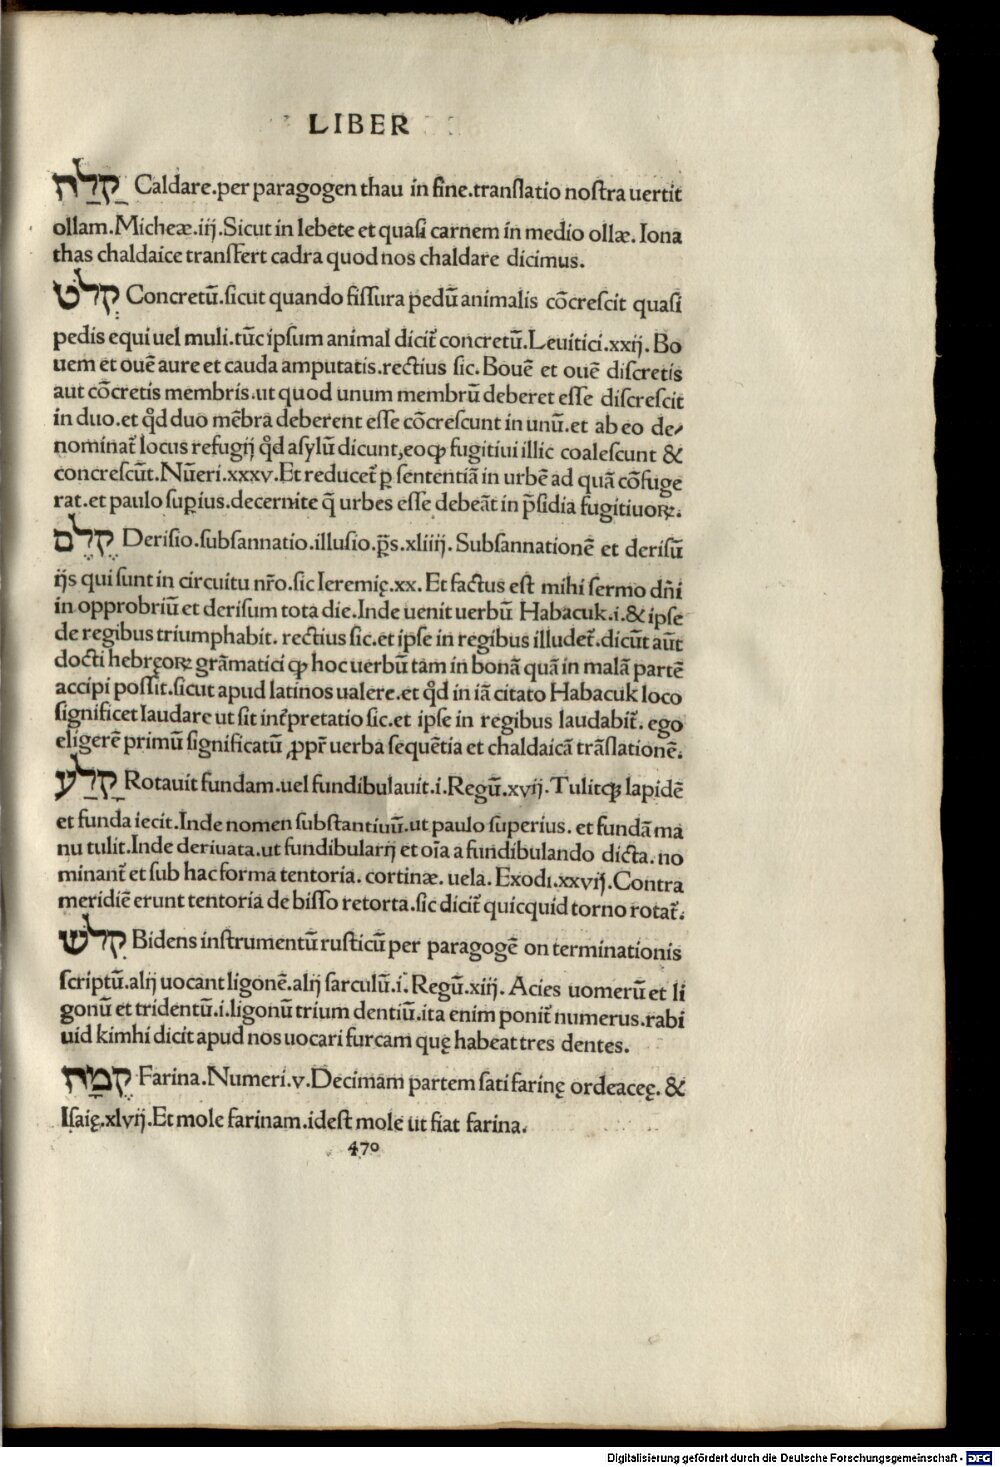 LIBER
קַלַּחַ Caldare.per paragogen thau in fine.translatio nostra uertit
ollam.Micheæ.iij.Sicut in lebete et quasi carnem in medio ollæ. Iona
thas chaldaice transfert cadra quod nos chaldare dicimus.
קָלֹט Concretū.sicut quando fissura pedū animalis cōcrescit quasi
pedis equi uel muli.tūc ipsum animal dicit᷑ concretū.Leuitici.xxij. Bo
uem et ouē aure et cauda amputatis.rectius sic. Bouē et ouē discretis
aut cōcretis membris.ut quod unum membrū deberet esse discrescit
in duo.et qd̄ duo mēbra deberent esse cōcrescunt in unū.et ab eo de⸗
nominat᷑ locus refugij qd̄ asylū dicunt,eoꝙ fugitiui illic coalescunt &
concrescūt. Nūeri.xxxv.Et reducet᷑ ꝑ sententiā in urbē ad quā cōfuge
rat.et paulo suꝑius.decernite q̄ urbes esse debeāt in p̄sidia fugitiuoꝝ.
קֶלֶם Derisio.subsannatio.illusio.p̄s.xliiij. Subsannationē et derisū
ijs qui sunt in circuitu nr̄o.sic Ieremię.xx. Et factus est mihi sermo dn̄i
in opprobriū et derisum tota die.Inde uenit uerbū Habacuk.i.& ipse
de regibus triumphabit. rectius sic.et ipse in regibus illudet᷑.dicūt aūt
docti hebręoꝝ grāmatici ꝙ hoc uerbū tam in bonā quā in malā partē
accipi possit.sicut apud latinos ualere.et qd̄ in iā citato Habacuk loco
significet laudare ut sit int᷑pretatio sic.et ipse in regibus laudabit᷑. ego
eligerē primū significatū ꝓpt᷑ uerba sequētia et chaldaicā trāslationē.
קַלַע Rotauit fundam.uel fundibulauit.i.Regū.xvij.Tulitqꝫ lapidē
et funda iecit.Inde nomen substantiuū.ut paulo superius. et fundā ma
nu tulit.Inde deriuata.ut fundibularij et oīa a fundibulando dicta. no
minant᷑ et sub hac forma tentoria. cortinæ. uela. Exodi.xxvij.Contra
meridiē erunt tentoria de bisso retorta.sic dicit᷑ quicquid torno rotat᷑.
קִלֹש Bidens instrumentū rusticū per paragogē on terminationis
scriptū.alij uocant ligonē.alij sarculū.i. Regū.xiij. Acies uomerū et li
gonū et tridentū.i.ligonū trium dentiū.ita enim ponit᷑ numerus.rabi
uid kimhi dicit apud nos uocari furcam quę habeat tres dentes.
קֶמַח Farina.Numeri.v.Decimam partem sati farinę ordeaceę. &
Isaię.xlvij.Et mole farinam.idest mole ut fiat farina.
470
Digitalisierung gefördert durch die Deutsche Forschungsgemeinschaft - DFG